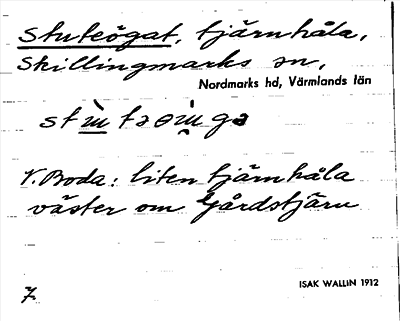 Stuteögat, tjärnhåla,
Skillingmarks sn,
Nordmarks hd, Värmlands län
V. Boda: liten tjärnhåla
väster om Gårdstjärn
ISAK WALLIN 1912
7.